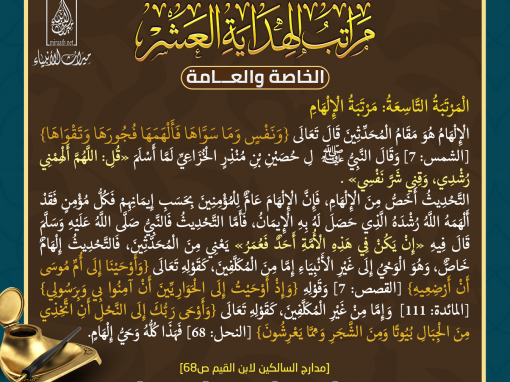 ميراث الأنبياء
miraath.net
مَرَاتِبُ الهِدَايَةِ العَشْرِ
الخاصة والعـــامة
الْمَرْتَبَةُ التَّاسِعَةُ: مَرْتَبَةُ الْإِلْهَامِ
الْإِلْهَامُ هُوَ مَقَامُ الْمُحَدَّثِينَ قَالَ تَعَالَى {وَنَفْسٍ وَمَا سَوَّاهَا فَأَلْهَمَهَا فُجُورَهَا وَتَقْوَاهَا}
[الشمس: 7] وَقَالَ النَّبِيُّ ﷺ لِ حُصَيْنِ بْنِ مُنْذِرٍ الْخُزَاعِيِّ لَمَّا أَسْلَمَ «قُلِ: اللَّهُمَّ أَلْهِمْنِي
رُشْدِي، وَقِنِي شَرَّ نَفْسِي» .
التَّحْدِيثُ أَخَصُّ مِنَ الْإِلْهَامِ، فَإِنَّ الْإِلْهَامَ عَامٌّ لِلْمُؤْمِنِينَ بِحَسَبِ إِيمَانِهِمْ فَكُلُّ مُؤْمِنٍ فَقَدْ
أَلْهَمَهُ اللَّهُ رُشْدَهُ الَّذِي حَصَلَ لَهُ بِهِ الْإِيمَانُ، فَأَمَّا التَّحْدِيثُ فَالنَّبِيُّ صَلَّى اللَّهُ عَلَيْهِ وَسَلَّمَ
قَالَ فِيهِ «إِنْ يَكُنْ فِي هَذِهِ الْأُمَّةِ أَحَدٌ فَعُمَرُ» يَعْنِي مِنَ الْمُحَدَّثِينَ، فَالتَّحْدِيثُ إِلْهَامٌ
خَاصٌّ، وَهُوَ الْوَحْيُ إِلَى غَيْرِ الْأَنْبِيَاءِ إِمَّا مِنَ الْمُكَلَّفِينَ، كَقَوْلِهِ تَعَالَى {وَأَوْحَيْنَا إِلَى أُمِّ مُوسَى
أَنْ أَرْضِعِيهِ} [القصص: 7] وَقَوْلِهِ {وَإِذْ أَوْحَيْتُ إِلَى الْحَوَارِيِّينَ أَنْ آمِنُوا بِي وَبِرَسُولِي}
[المائدة: 111] وَإِمَّا مِنْ غَيْرِ الْمُكَلَّفِينَ، كَقَوْلِهِ تَعَالَى {وَأَوْحَى رَبُّكَ إِلَى النَّحْلِ أَنِ اتَّخِذِي
مِنَ الْجِبَالِ بُيُوتًا وَمِنَ الشَّجَرِ وَمِمَّا يَعْرِشُونَ} [النحل: 68] فَهَذَا كُلُّهُ وَحْيُ إِلْهَامٍ.
[مدارج السالكين لابن القيم ص68]